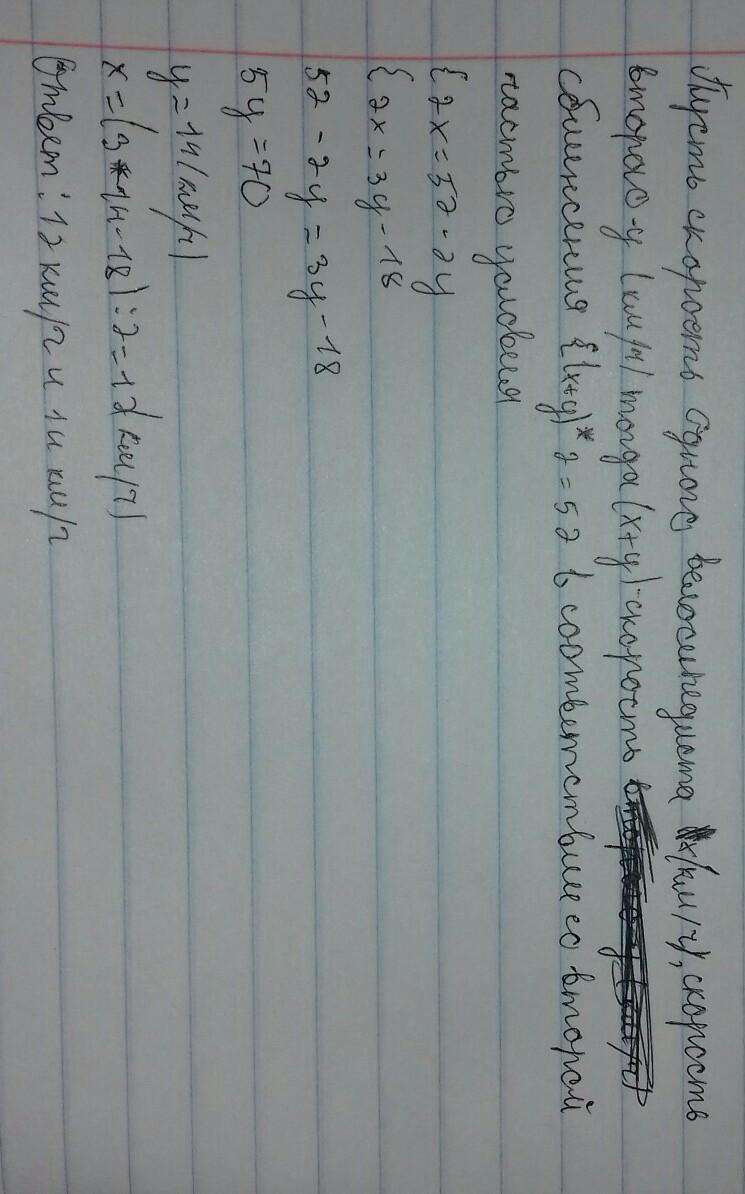 Пусть скорость одного велосипедиста x (км/ч), скорость
второго-y (км/ч) тогда (x+y)-скорость
сближения {(x+y)*2=52 в соответствии со второй
частью условия
{2x=52-2y
{2x=3y-18
52-2y=3y-18
5y=70
y=14(км/ч)
x=(3*14-18):2=12(км/ч)
Ответ: 12 км/ч и 14 км/ч